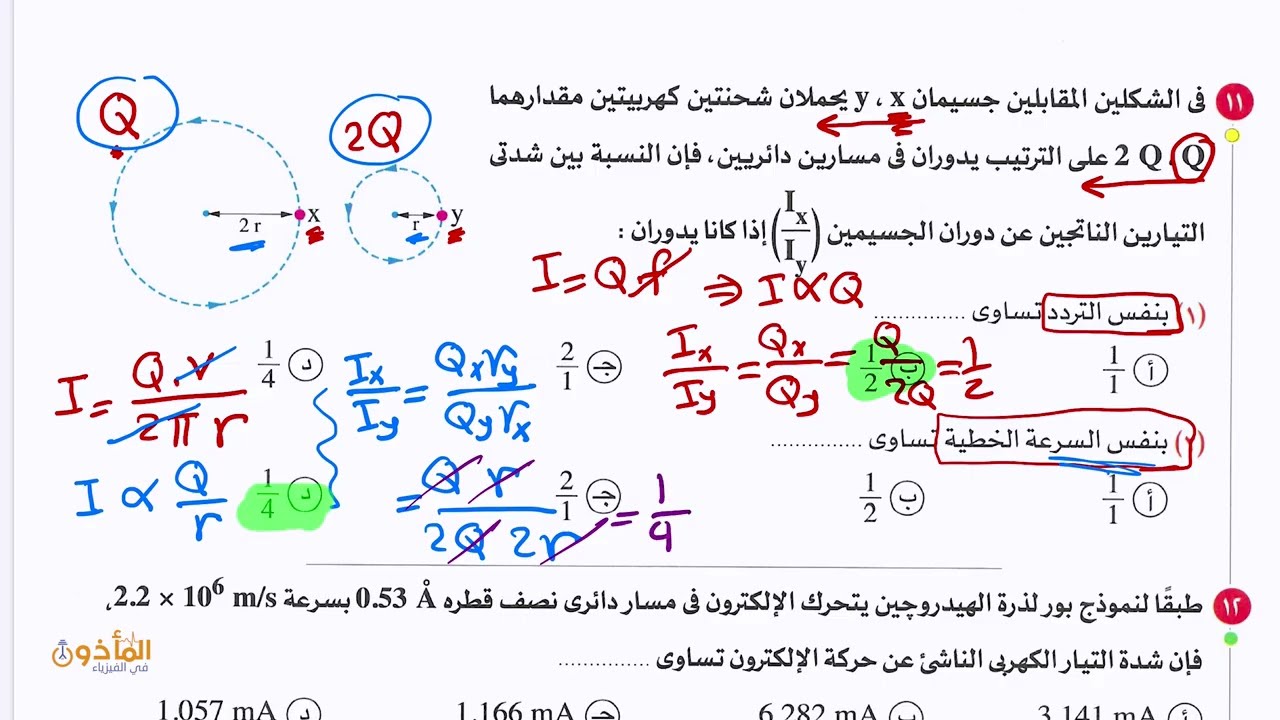 ١١ فى الشكلين المقابلين جسيمان x ، y يحملان شحنتين كهربيتين مقدارهما
Q ، 2 Q على الترتيب يدوران فى مسارين دائريين ، فإن النسبة بين شدتى
التيارين الناتجين عن دوران الجسيمين (I_x / I_y) إذا كانا يدوران :
Q
2Q
2 r x
r y
I = Q f ⇒ I ∝ Q
(١) بنفس التردد تساوى ...............
أ 1/1 ب 1/2 جـ 2/1 د 1/4
I_x / I_y = Q_x / Q_y = Q / 2Q = 1/2
(٢) بنفس السرعة الخطية تساوى ...............
أ 1/1 ب 1/2 جـ 2/1 د 1/4
I = Q.v / 2π r
I ∝ Q / r
I_x / I_y = Q_x r_y / Q_y r_x
= Q r / 2Q 2r = 1/4
١٢ طبقًا لنموذج بور لذرة الهيدروچين يتحرك الإلكترون فى مسار دائرى نصف قطره 0.53 Å بسرعة 2.2 × 10⁶ m/s ،
فإن شدة التيار الكهربى الناشئ عن حركة الإلكترون تساوى ...............
أ 3.141 mA ب 6.282 mA جـ 1.166 mA د 1.057 mA
المأذون
في الفيزياء